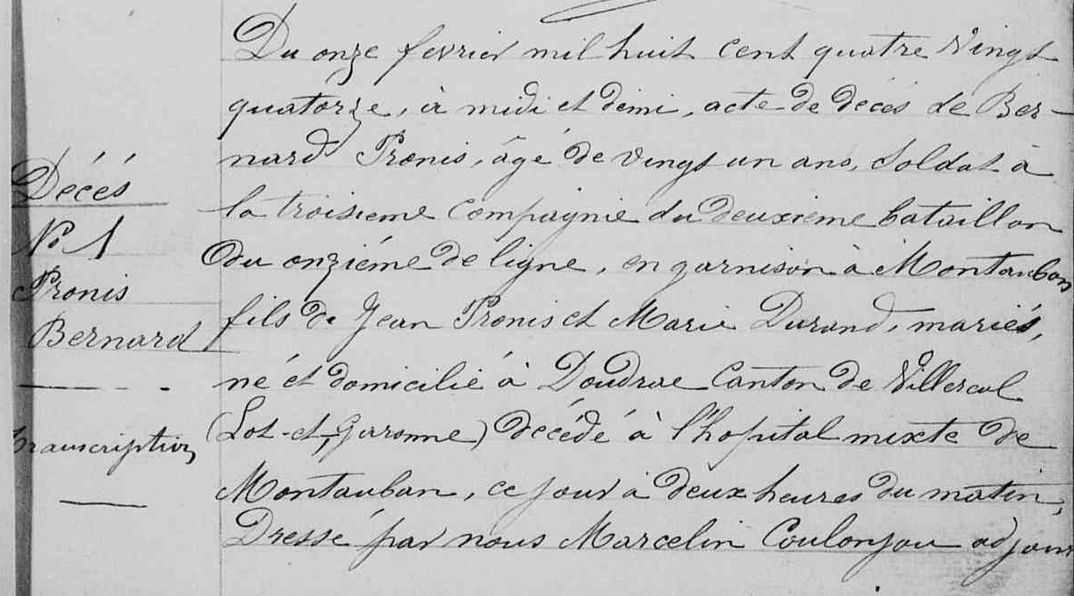 Décés
No 1
Pronis
Bernard
transcription
Du onze fevrier mil huit cent quatre vingt
quatorze, à midi et demi, acte de décés de Ber-
nard Pronis, âgé de vingt un ans, soldat à
la troisieme compagnie du deuxieme bataillon
du onziéme de ligne, en garnison à Montauban
fils de Jean Pronis et Marie Durand, mariés,
né et domicilié à Doudrac canton de Villereal
(Lot-et-Garonne) décédé à l'hopital mixte de
Montauban, ce jour à deux heures du matin,
Dressé par nous Marcelin Coulonjou adjoint